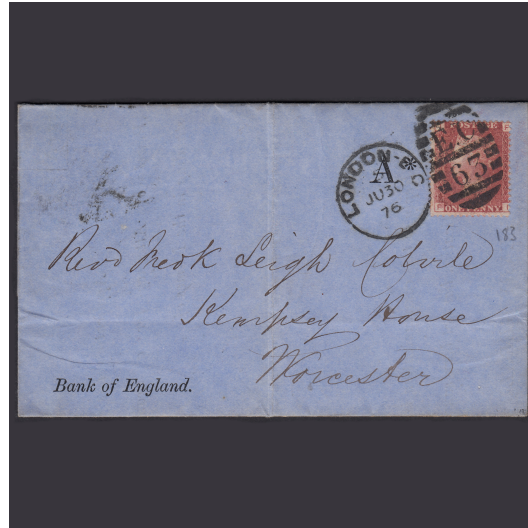 LONDON·E·C
A
JU30
76
E.C
63
POSTAGE
ONE PENNY
183
Revd Fredk Leigh Colvile
Kempsey House
Worcester
Bank of England.